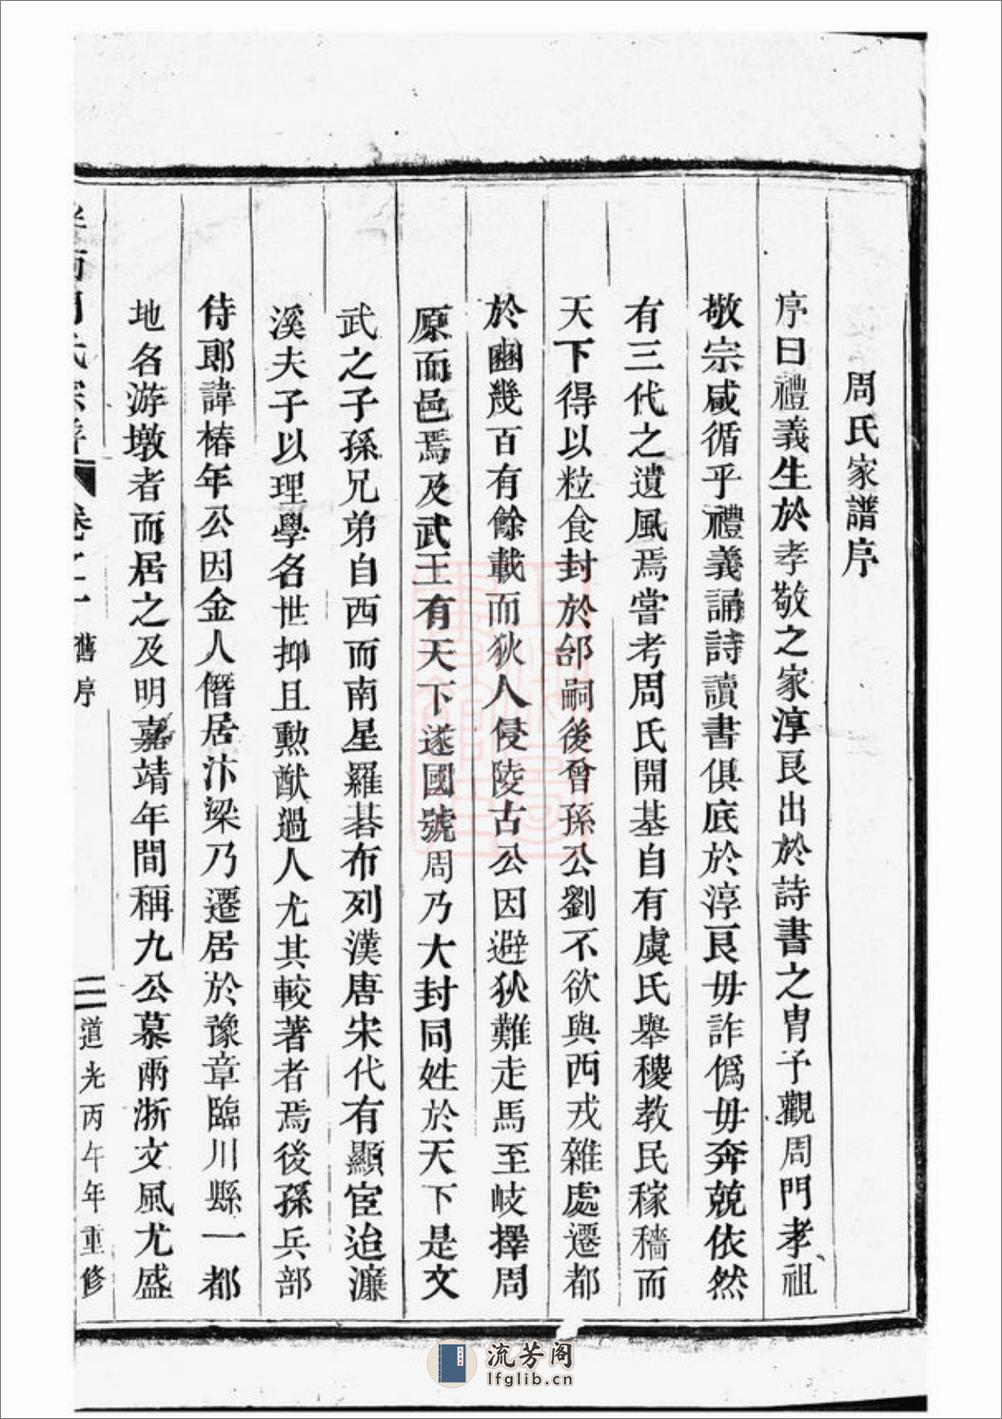 周氏家譜序
序曰禮義生於孝敬之家淳良出於詩書之胄予觀周門孝祖
敬宗咸循乎禮義誦詩讀書俱底於淳良毋詐僞毋奔兢依然
有三代之遺風焉嘗考周氏開基自有虞氏舉稷教民稼穡而
天下得以粒食封於邰嗣後曾孫公劉不欲與西戎雜處遷都
於豳幾百有餘載而狄人侵陵古公因避狄難走馬至岐擇周
原而邑焉及武王有天下遂國號周乃大封同姓於天下是文
武之子孫兄弟自西而南星羅碁布列漢唐宋代有顯宦迨濂
溪夫子以理學名世抑且勲猷過人尤其較著者焉後孫兵部
侍郎諱椿年公因金人僭居汴梁乃遷居於豫章臨川縣一都
地名游墩者而居之及明嘉靖年間稱九公慕兩浙文風尤盛
周氏宗譜 卷之一 舊序 三 道光丙午年重修
流芳阁
lfglib.cn